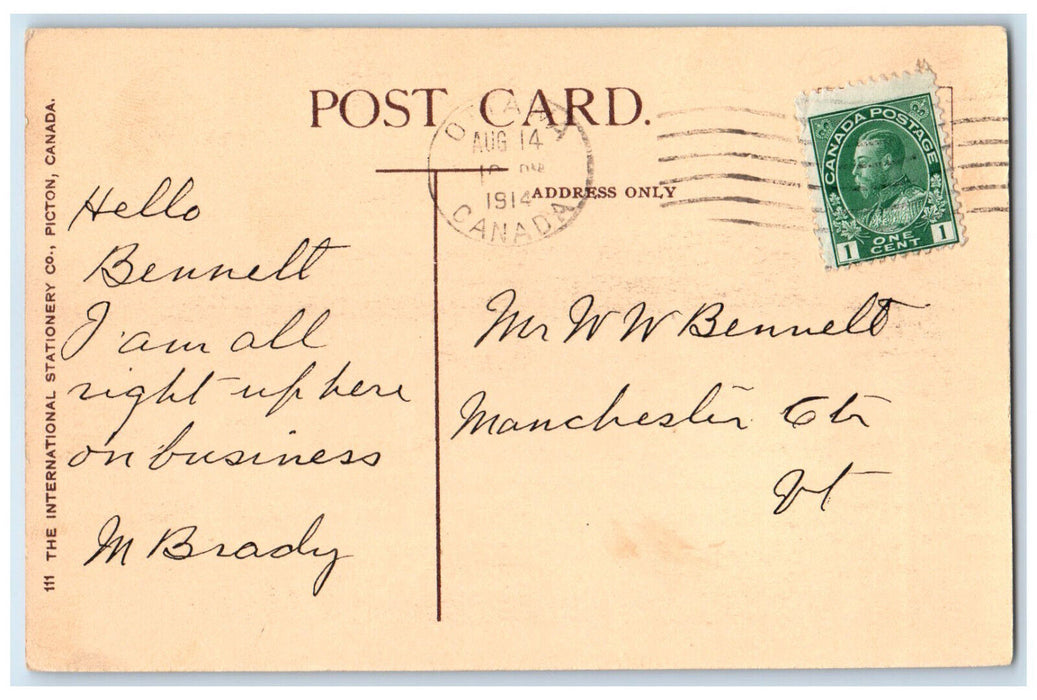 POST CARD.
OTTAWA
AUG 14
PM
1914
CANADA
ADDRESS ONLY
CANADA POSTAGE
1 ONE CENT 1
111 THE INTERNATIONAL STATIONERY CO., PICTON, CANADA.
Hello
Bennett
I am all
right up here
on business
M Brady
Mr W W Bennett
Manchester Ctr
Vt